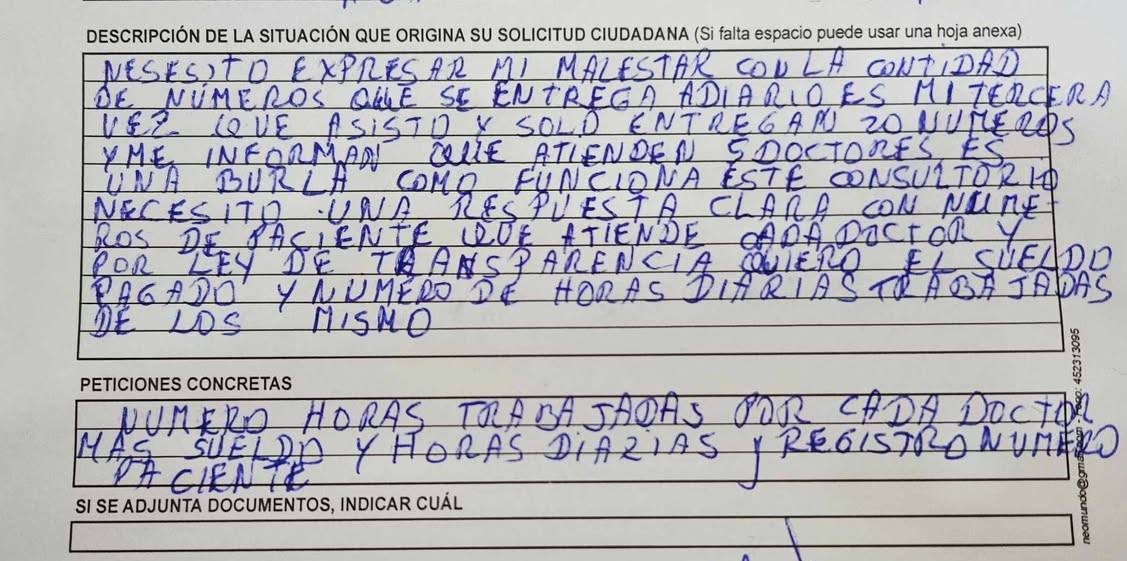 DESCRIPCIÓN DE LA SITUACIÓN QUE ORIGINA SU SOLICITUD CIUDADANA (Si falta espacio puede usar una hoja anexa)
NESESITO EXPRESAR MI MALESTAR CON LA CONTIDAD
DE NÚMEROS QUE SE ENTREGA ADIARIO ES MI TERCERA
VEZ QUE ASISTO Y SOLO ENTREGAN 20 NUMEROS
Y ME INFORMAN QUE ATIENDEN 5 DOCTORES ES
UNA BURLA COMO FUNCIONA ESTE CONSULTORIO
NECESITO UNA RESPUESTA CLARA CON NUME-
ROS DE PACIENTE QUE ATIENDE CADA DOCTOR Y
POR LEY DE TRANSPARENCIA QUIERO EL SUELDO
PAGADO Y NUMERO DE HORAS DIARIAS TRABAJADAS
DE LOS MISMO
PETICIONES CONCRETAS
NUMERO HORAS TRABAJADAS POR CADA DOCTOR
MAS SUELDO Y HORAS DIARIAS Y REGISTRO NUMERO
PACIENTE
SI SE ADJUNTA DOCUMENTOS, INDICAR CUÁL
452313095